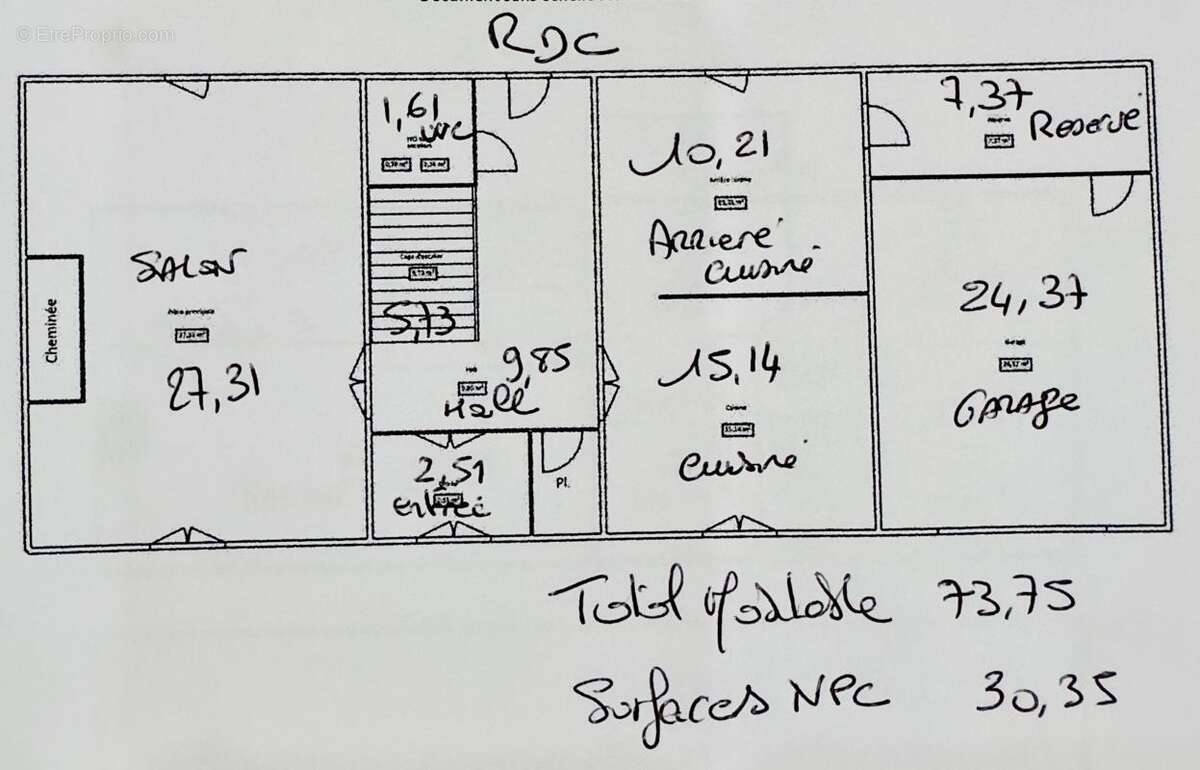 © EtreProprio.com
RDC
1,61
WC
10,21
Arrière
cuisine
7,37
Réserve
SALON
27,31
Cheminée
5,73
9,85
Hall
15,14
Cuisine
24,37
GARAGE
2,51
entrée
Pl.
Total Habitable 73,75
Surfaces NPC 30,35